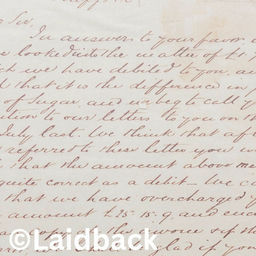 Sir.
In answer to your favor
looked into the matter of £
we have debited to you, an
that it is the difference in
of Sugar, and we beg to call y
to our letters to you on th
July last. We think that af
referred to these letter you w
that the amount above me
quite correct as a debit. We c
that we have overcharged y
amount £15.15.9. and
©Laidback
glad if you